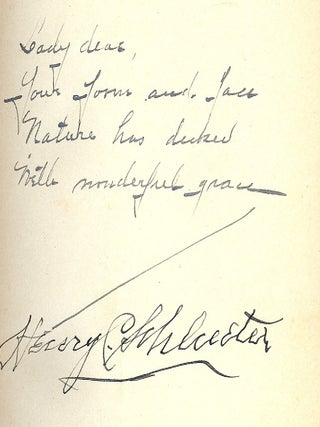 Lady dear,
Your form and face
Nature has decked
With wonderful grace
Henry C.